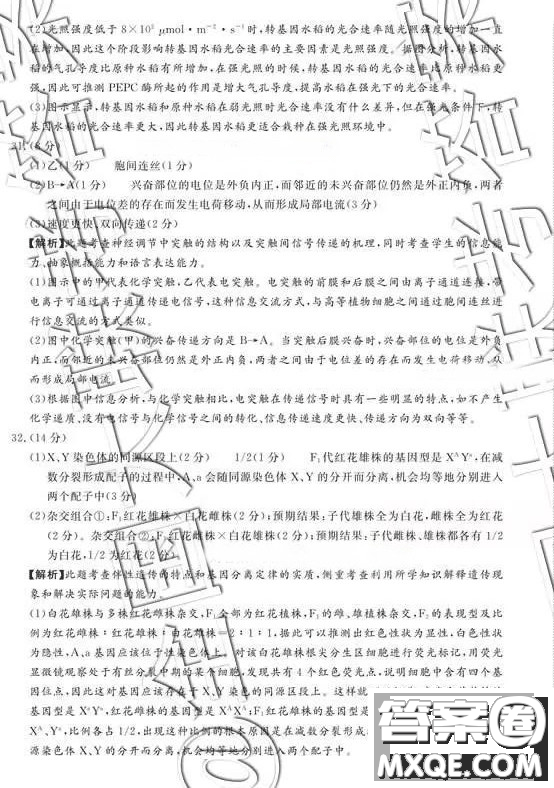 (2)光照强度低于 8×10² μmol·m⁻²·s⁻¹时,转基因水稻的光合速率随光照强度的增加一直
在增加,因此这个阶段影响转基因水稻光合速率的主要因素是光照强度。据图分析,转基因水
稻的气孔导度比原种水稻有所增加,在强光照的时候,转基因水稻的光合速率比原种水稻更
强,因此可推测 PEPC 酶所起的作用是增大气孔导度,提高水稻在强光下的光合速率。
(3)图示显示,转基因水稻和原种水稻在弱光照时光合速率没有什么差异,但在强光条件下,转
基因水稻的光合速率更大,因此转基因水稻更适合栽种在强光照环境中。
31.(8分)
(1)乙(1分) 胞间连丝(1分)
(2)B→A(1分) 兴奋部位的电位是外负内正,而邻近的未兴奋部位仍然是外正内负,两者
之间由于电位差的存在而发生电荷移动,从而形成局部电流(3分)
(3)速度更快、双向传递(2分)
【解析】此题考查神经调节中突触的结构以及突触间信号传递的机理,同时考查学生的信息能
力、抽象概括能力和语言表达能力。
(1)图示中的甲代表化学突触,乙代表电突触。电突触的前膜和后膜之间由离子通道连接,带
电离子可通过离子通道传递电信号,这种信息交流方式,与高等植物细胞之间通过胞间连丝进
行信息交流的方式类似。
(2)图中化学突触(甲)的兴奋传递方向是 B→A。当突触后膜兴奋时,兴奋部位的电位是外负
内正,而邻近的未兴奋部位仍然是外正内负,两者之间由于电位差的存在而发生电荷移动,从
而形成局部电流。
(3)根据图中信息分析,与化学突触相比,电突触在传递信号时具有一些明显的特点,如不产生
化学递质、没有电信号与化学信号之间的转化、信息传递速度更快、传递方向为双向等等。
32.(14分)
(1)X、Y染色体的同源区段上(2分) 1/2(1分) F₁代红花雄株的基因型是 XᴬYᵃ,在减
数分裂形成配子的过程中,A、a会随同源染色体 X、Y 的分开而分离,机会均等地分别进入
两个配子中(3分)
(2)杂交组合①:F₁红花雄株×白花雌株(2分);预期结果:子代雄株全为白花,雌株全为红花
(2分)。杂交组合②:F₁红花雌株×白花雄株(2分);预期结果:子代雌株、雄株都各有 1/2
为白花,1/2 为红花(2分)
【解析】此题考查伴性遗传的特点和基因分离定律的实质,侧重考查利用所学知识解释遗传现
象和解决实际问题的能力。
(1)白花雄株与多株红花雌株杂交,F₁全部为红花植株,F₁的雌、雄植株杂交,F₂的表现型及比
例为红花雌株∶红花雄株∶白花雄株=2∶1∶1,据此可以推测出红色性状为显性,白色性状
为隐性,A、a基因应该位于性染色体上。对该白花雄株根尖分生区细胞进行荧光标记,用荧光
显微镜观察处于有丝分裂中期的某个细胞,发现共有 4 个红色荧光点,说明细胞中含有四个基
因位点,因此这对基因应该存在于 X、Y 染色的同源区段上。这样就
基因型是 XᵃYᵃ,红花雌株的基因型是 XᴬXᴬ;F₁红花雄株的基因型是
Xᴬ、Yᵃ,比例各占 1/2,出现这种比例的根本原因是在减数分裂形成
源染色体 X、Y 的分开而分离,机会均等地分别进入两个配子中。
答案圈
MXQE.COM